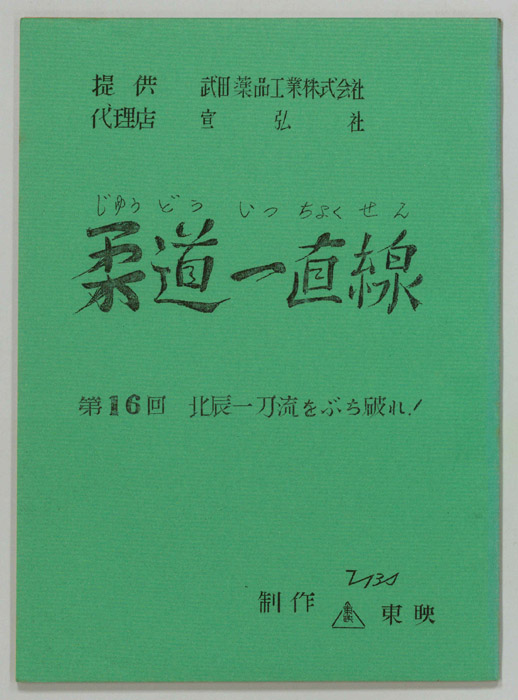 提供 武田薬品工業株式会社
代理店 宣弘社
じゅうどういっちょくせん
柔道一直線
第16回 北辰一刀流をぶち破れ!
TBS
制作 東映